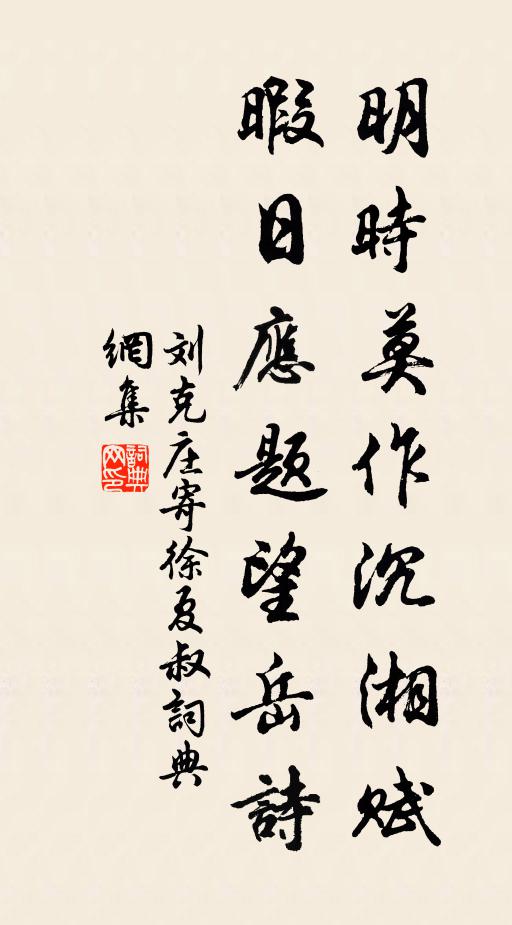 明時莫作沉湘赋
暇日應题望岳詩
刘克庄寄徐夏叔詞典
網集
詞典网印